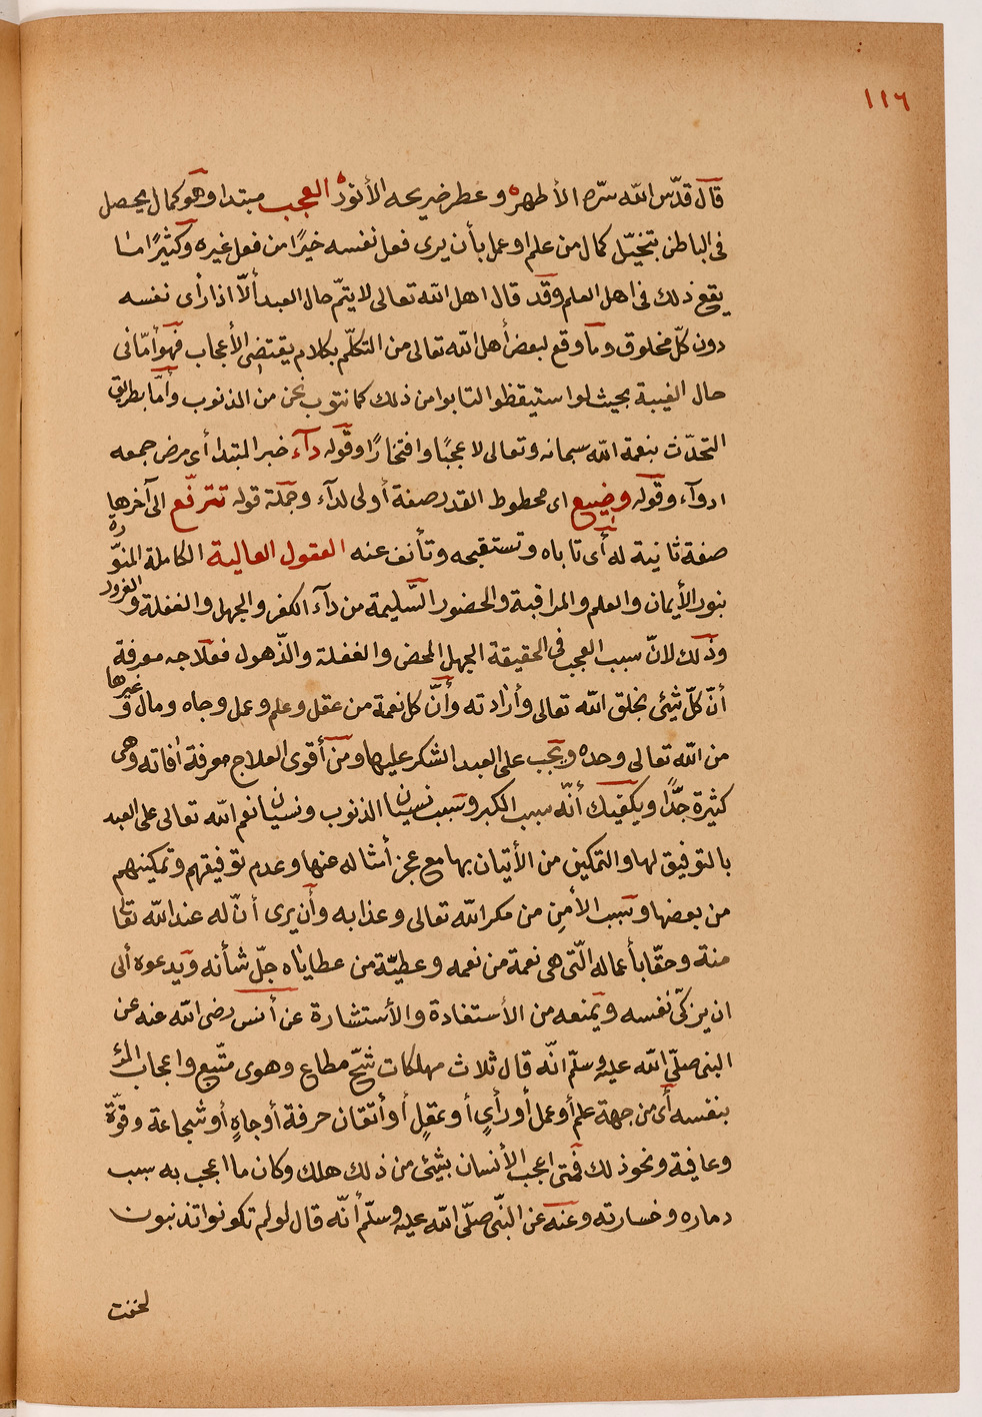 ١١٦
قال قدّس الله سرّه الأطهر وعطر ضريحه الأنور العجب مبتدا وهو كمال يحصل
فى الباطن بتخيّل كمال من علم او عمل بأن يرى فعل نفسه خيرًا من فعل غيره وكثيرًا ما
يقع ذلك فى اهل العلم وقد قال اهل الله تعالى لا يتمّ حال العبد ألّا اذا رأى نفسه
دون كلّ مخلوق وما وقع لبعض أهل الله تعالى من التكلّم بكلام يقتضى الأعجاب فهو أمّا فى
حال الغيبة بحيث لو استيقظوا لتابوا من ذلك كما نتوب نحن من الذنوب وأمّا بطريق
التحدّث بنعمة الله سبحانه وتعالى لا عجبًا وافتخارًا وقوله دآء خبر المبتدا أى مرض جمعه
ادوآء وقوله وضيع اى محطوط القدر صفة أولى لدآء وجملة قوله تترفّع الى آخرها
صفة ثانية له أى تاباه وتستقبحه وتأنف عنه العقول العالية الكاملة المنوّرة
بنور الأيمان والعلم والمراقبة والحضور السّليمة من دآء الكفر والجهل والغفلة والغرور
وذلك لانّ سبب العجب فى الحقيقة الجهل المحض والغفلة والذّهول فعلاجه معرفة
أنّ كلّ شيئ بخلق الله تعالى وأرادته وأنّ كل نعمة من عقل وعلم وعمل وجاه ومال وغيرها
من الله تعالى وحده ويجب على العبد الشكر عليها ومن أقوى العلاج معرفة افاته وهى
كثيرة جدًّا ويكفيك أنّه سبب الكبر وسبب نسيان الذنوب ونسيان نعم الله تعالى على العبد
بالتوفيق لها والتمكين من الأتيان بها مع عجز أمثاله عنها وعدم توفيقهم وتمكينهم
من بعضها وسبب الأمن من مكر الله تعالى وعذابه وأن يرى أنّ له عند الله تعا
منة وحقّا بأعماله الّتى هى نعمة من نعمه وعطيّة من عطاياه جلّ شأنه ويدعوه ألى
ان يزكّى نفسه ويمنعه من الأستفادة والأستشارة عن أنس رضى الله عنه عن
النبى صلّى الله عليه وسلّم انّه قال ثلاث مهلكات شحّ مطاع وهوى متّبع واعجاب المرُ
بنفسه أى من جهة علم أو عمل أو رأيٍ أو عقلٍ أو أتقان حرفة أو جاهٍ أو شجاعة وقوّة
وعافية ونحو ذلك فمتى اعجب الأنسان بشيئ من ذلك هلك وكان ما اعجب به سبب
دماره وخسارته وعنه عن النبّى صلّى الله عليه وسلّم أنّه قال لو لم تكونوا تذنبون
لخفت